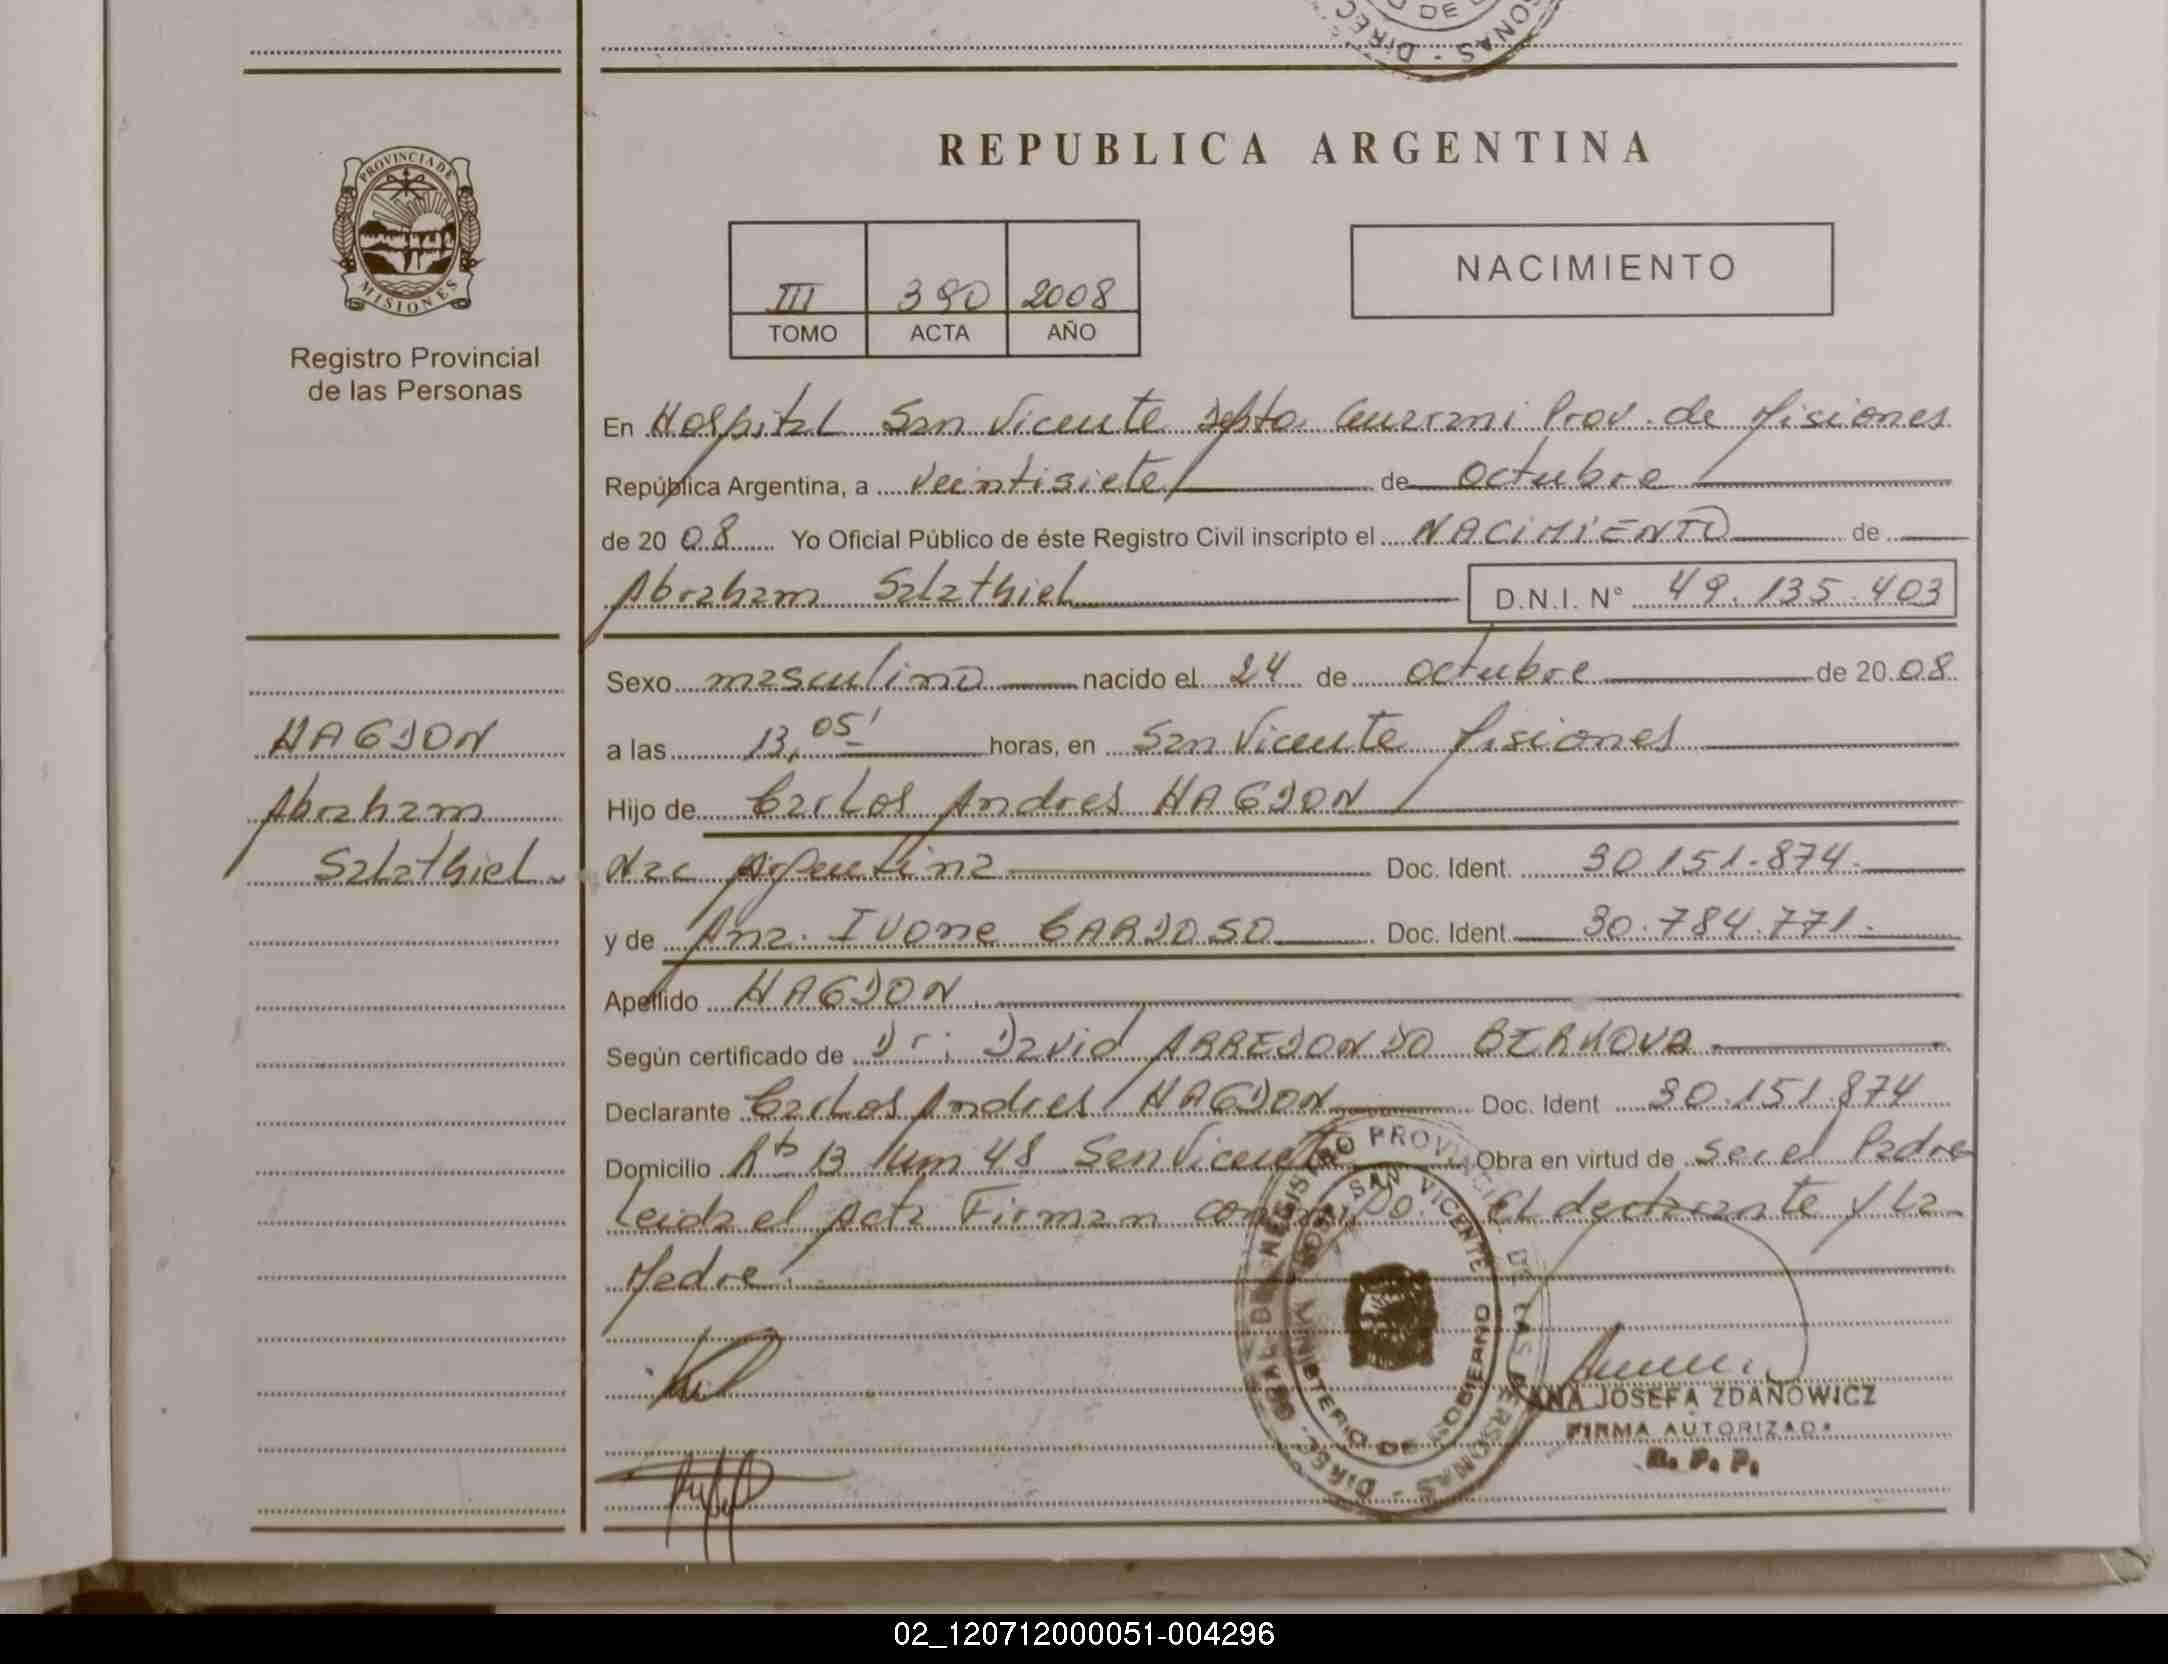 DIREC
O DE
ONAS -
REPUBLICA ARGENTINA
PROVINCIA DE
MISIONES
Registro Provincial
de las Personas
NACIMIENTO
III 390 2008
TOMO ACTA AÑO
En Hospital San Vicente Dpto. Guarani Prov. de Misiones
República Argentina, a veintisiete de octubre
de 20 08 Yo Oficial Público de éste Registro Civil inscripto el NACIMIENTO de
Abraham Salathiel D.N.I. N° 49.135.403
Sexo masculino nacido el 24 de octubre de 20 08
HAGDON
a las 13,05' horas, en San Vicente Misiones
Abraham
Hijo de Carlos Andres HAGDON
Salathiel.
Nac Argentina Doc. Ident. 30.151.874.
y de Ana. Ivone CARDOSO Doc. Ident. 30.784.771.
Apellido HAGDON.
Según certificado de Dr: David ARREDONDO
Declarante Carlos Andres HAGDON Doc. Ident 30.151.874
Domicilio Rta 13 km 48 San Vicente Obra en virtud de ser el Padre
Leida el Acta Firman conmigo. el declarante y la
Madre.
REGISTRO PROVINCIAL DE LAS PERSONAS - DIREC. GRAL DEL
SAN VICENTE
MINISTERIO DE GOBIERNO
ANA JOSEFA ZDANOWICZ
FIRMA AUTORIZADA
R. P. P.
02_120712000051-004296